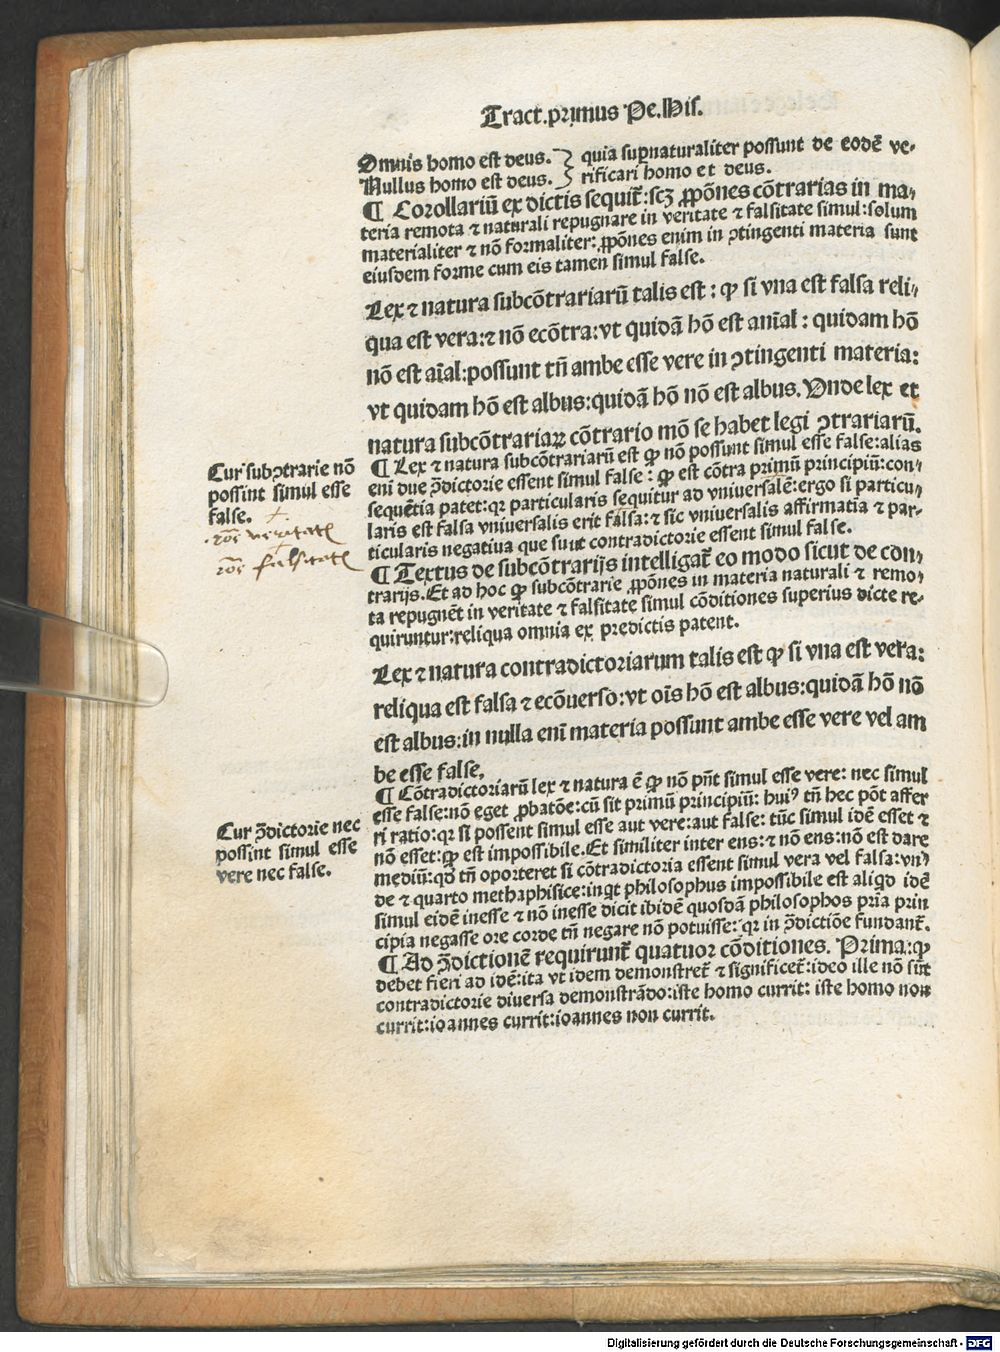 Tract.primus Pe.His.
Omnis homo est deus. } quia supnaturaliter possunt de eodē ve-
Nullus homo est deus. } rificari homo et deus.
¶ Corollariū ex dictis sequit̄:scꝫ ꝓpōnes cōtrarias in ma-
teria remota ⁊ naturali repugnare in veritate ⁊ falsitate simul:solum
materialiter ⁊ nō formaliter: ꝓpōnes enim in ꝯtingenti materia sunt
eiusdem forme cum eis tamen simul false.
Lex ⁊ natura subcōtrariarū talis est : ꝙ si vna est falsa reli-
qua est vera:⁊ nō ecōtra:vt quidā hō est aīal : quidam hō
nō est aīal:possunt tn̄ ambe esse vere in ꝯtingenti materia:
vt quidam hō est albus:quidā hō nō est albus. Unde lex et
natura subcōtrariaꝝ cōtrario mō se habet legi ꝯtrariarū.
¶ Lex ⁊ natura subcōtrariarū est ꝙ nō possunt simul esse false:alias
enī due ꝯ̄dictorie essent simul false : ꝙ est cōtra primū principiū: con-
sequētia patet:qꝛ particularis sequitur ad vniversalē:ergo si particu-
laris est falsa vniuersalis erit falsa:⁊ sic vniuersalis affirmatia ⁊ par-
ticularis negatiua que sunt contradictorie essent simul false.
¶ Textus de subcōtrarijs intelligat̄ eo modo sicut de con-
trarijs. Et ad hoc ꝙ subcōtrarie ꝓpōnes in materia naturali ⁊ remo-
ta repugnēt in veritate ⁊ falsitate simul cōditiones superius dicte re-
quiruntur:reliqua omnia ex predictis patent.
Lex ⁊ natura contradictoriarum talis est ꝙ si vna est vera:
reliqua est falsa ⁊ ecōuerso:vt oīs hō est albus:quidā hō nō
est albus:in nulla enī materia possunt ambe esse vere vel am
be esse false.
¶ Cōtradictoriarū lex ⁊ natura ē ꝙ nō pn̄t simul esse vere: nec simul
esse false:nō eget ꝓbatōe:cū sit primū principiū: huiꝰ tn̄ hec pōt affer
ri ratio:qꝛ si possent simul esse aut vere:aut false: tūc simul idē esset ⁊
nō esset:ꝙ est impossibile.Et similiter inter ens:⁊ nō ens:nō est dare
mediū:qd̄ tn̄ oporteret si cōtradictoria essent simul vera vel falsa:vn-
de ⁊ quarto methaphisice:inqt philosophus impossibile est aliqd idē
simul eidē inesse ⁊ nō inesse dicit ibidē quosdā philosophos pria prin
cipia negasse ore corde tn̄ negare nō potuisse: qꝛ in ꝯ̄dictiōe fundant̄.
¶ Ad ꝯ̄dictionē requirunt̄ quatuor cōditiones. Prima:ꝙ
debet fieri ad idē:ita vt idem demonstret̄ ⁊ significet̄:ideo ille nō sūt
contradictorie diuersa demonstrādo:iste homo currit: iste homo non
currit:ioannes currit:ioannes non currit.
Cur subꝯtrarie nō
possint simul esse
false.
veritatē
falsitatē
Cur ꝯ̄dictorie nec
possint simul esse
vere nec false.
Digitalisierung gefördert durch die Deutsche Forschungsgemeinschaft - DFG